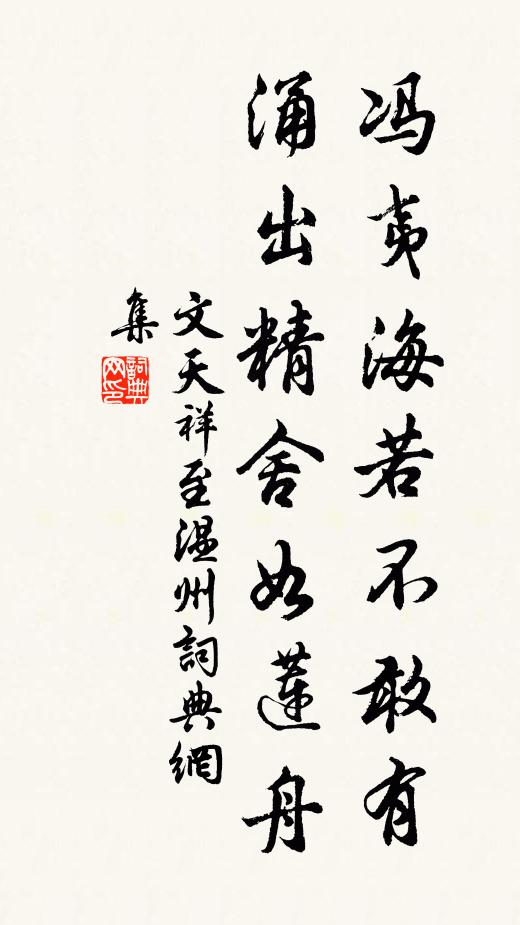 冯夷海若不敢有
涌出精舍如莲舟
文天祥至温州詞典網
集
詞典
网印